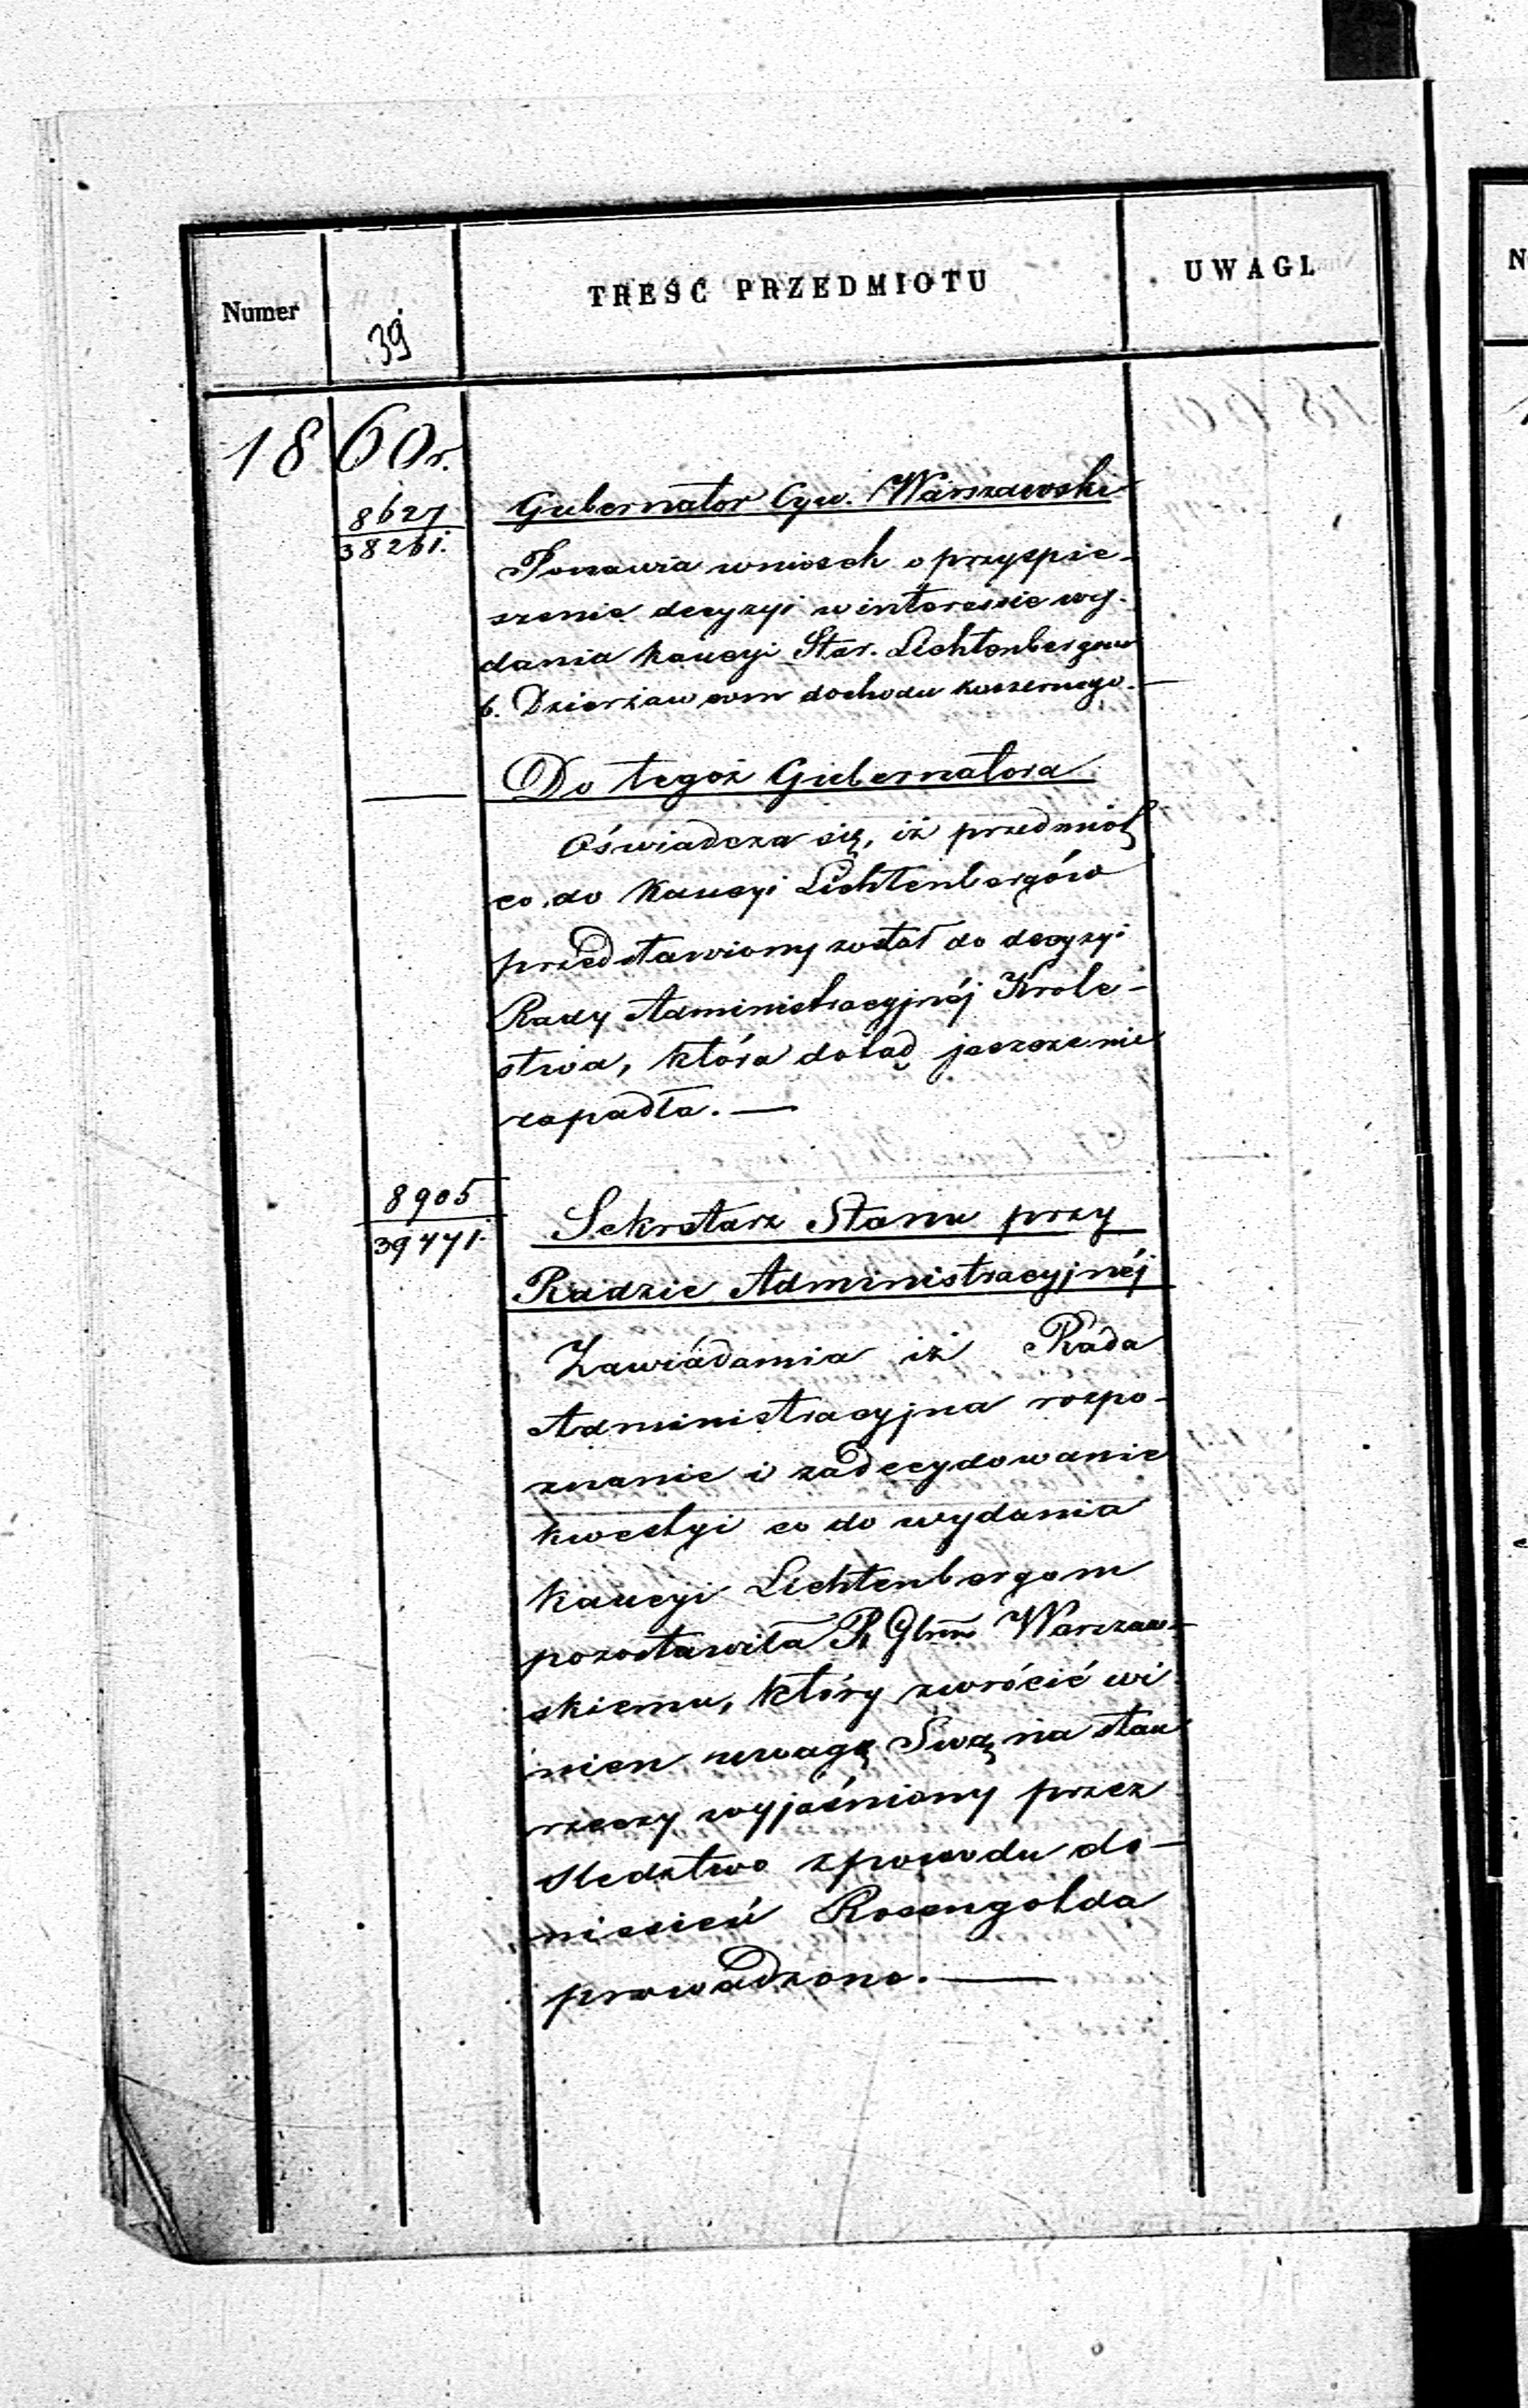 Numer
39
TREŚĆ PRZEDMIOTU
UWAGI.
1860r.
8627
38261.
Gubernator Cyw. Warszawski
Ponawia wniosek o przyspie-
szenie decyzyi w interessie wy-
dania kaucyi Star. Lichtenbergom
b. Dzierżawcom dochodu koszernego.
Do tegoż Gubernatora
Oświadcza się, iż przedmiot
co do kaucyi Lichtenbergów
przedstawiony został do decyzyi
Rady Administracyjnéj Króle-
stwa, która dotąd jeszcze nie
zapadła.
8905
39771.
Sekretarz Stanu przy
Radzie Administracyjnéj
Zawiadamia iż Rada
Administracyjna rozpo-
znanie i zadecydowanie
kwestyi co do wydania
kaucyi Lichtenbergom
pozostawiła R. Warszaw-
skiemu, który zwrócić wi
nien uwagę Swą na stan
rzeczy wyjaśniony przez
śledztwo z powodu do-
niesień Rosengolda
prowadzone.